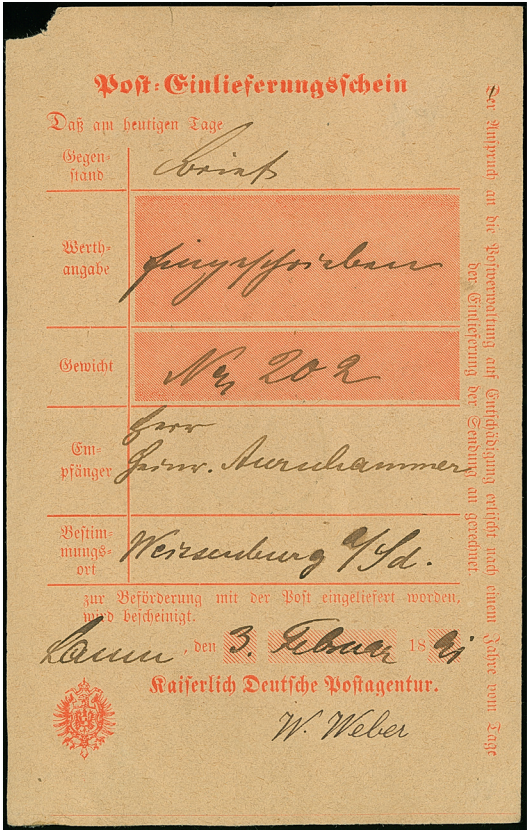 Post-Einlieferungsschein
Daß am heutigen Tage
Gegen-
stand
Brief
Werth-
angabe
Eingeschrieben
Gewicht
No 202
Em-
pfänger
Herr
Heinr. Aurnhammer
Bestim-
mungs-
ort
Weissenburg a/Sd.
zur Beförderung mit der Post eingeliefert worden,
wird bescheinigt.
, den 3. Februar 1891
Kaiserlich Deutsche Postagentur.
W. Weber
Der Anspruch an die Postverwaltung auf Entschädigung erlischt nach einem Jahre vom Tage
der Einlieferung der Sendung an gerechnet.